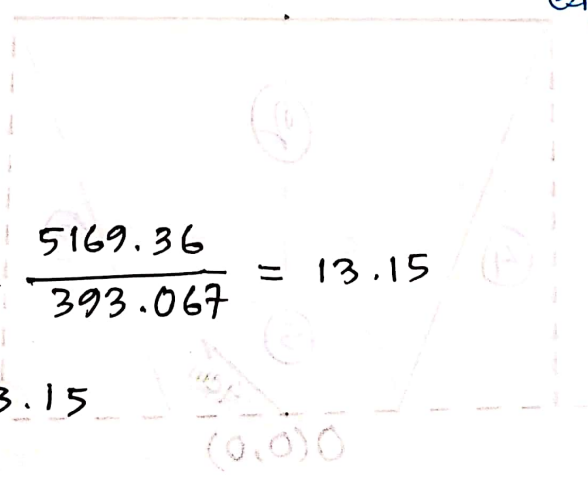 5169.36
393.067 = 13.15
3.15
(0,0)